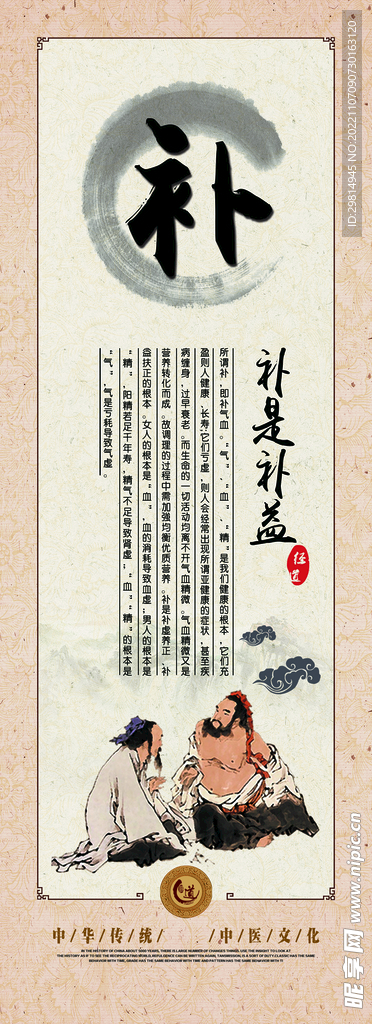 补
补是补益
经道
所谓补，即补气血。“气”、“血”、“精”是我们健康的根本，它们充
盈则人健康、长寿；它们亏虚，则人会经常出现所谓亚健康的症状，甚至疾
病缠身，过早衰老。而生命的一切活动均离不开气血精微。气血精微又是
营养转化而成。故调理的过程中需加强均衡优质营养。补是补虚养正，补
益扶正的根本。女人的根本是“血”，血的消耗导致血虚；男人的根本是
“精”，阳精若足千年寿，精气不足导致肾虚；“血”“精”的根本是
“气”，气是亏耗导致气虚。
道
中/华/传/统/ /中/医/文/化
IN THE HISTORY OF CHINA ABOUT 5000 YEARS, THERE IS LARGE NUMBER OF CHANGES THINGS, USE THE INSIGHT TO LOOK AT
THE HISTORY AS IF TO SEE THE RECIPROCATING WORLD, REFULGENCE CAN BE WRITTEN AGAIN, TANSMISSION, IS A SORT OF DUTY. CLASSIC HAS THE SAME
BEHAVIOR WITH TIME, GRASS HAS THE SAME BEHAVIOR WITH TIME AND PATTERN HAS THE SAME BEHAVIOR WITH TI
ID:29814945 NO:20221107090730163120
昵享网 www.nipic.cn